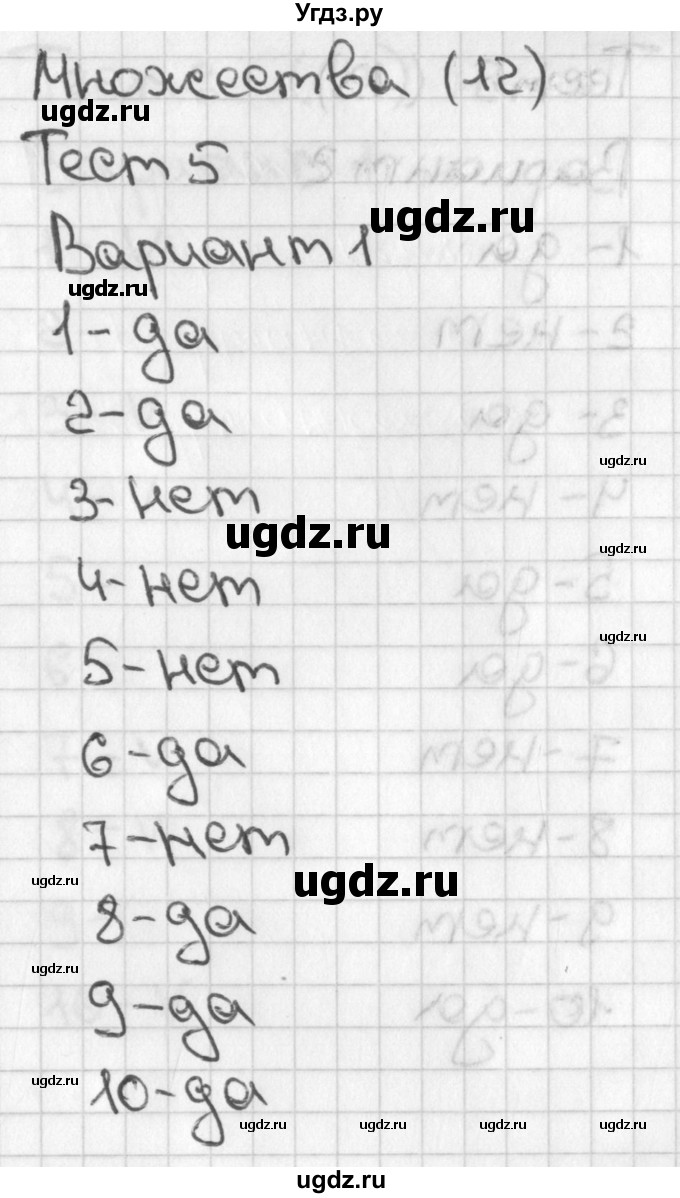 Угдз.ру
Множества (12)
ugdz.ru
Тест 5
ugdz.ru
Вариант 1
ugdz.ru
1-да
2-да
ugdz.ru
3-нет
ugdz.ru
ugdz.ru
4-нет
ugdz.ru
5-нет
6-да
7-нет
ugdz.ru
ugdz.ru
8-да
ugdz.ru
9-да
ugdz.ru
10-да
ugdz.ru ugdz.ru ugdz.ru ugdz.ru
ugdz.ru